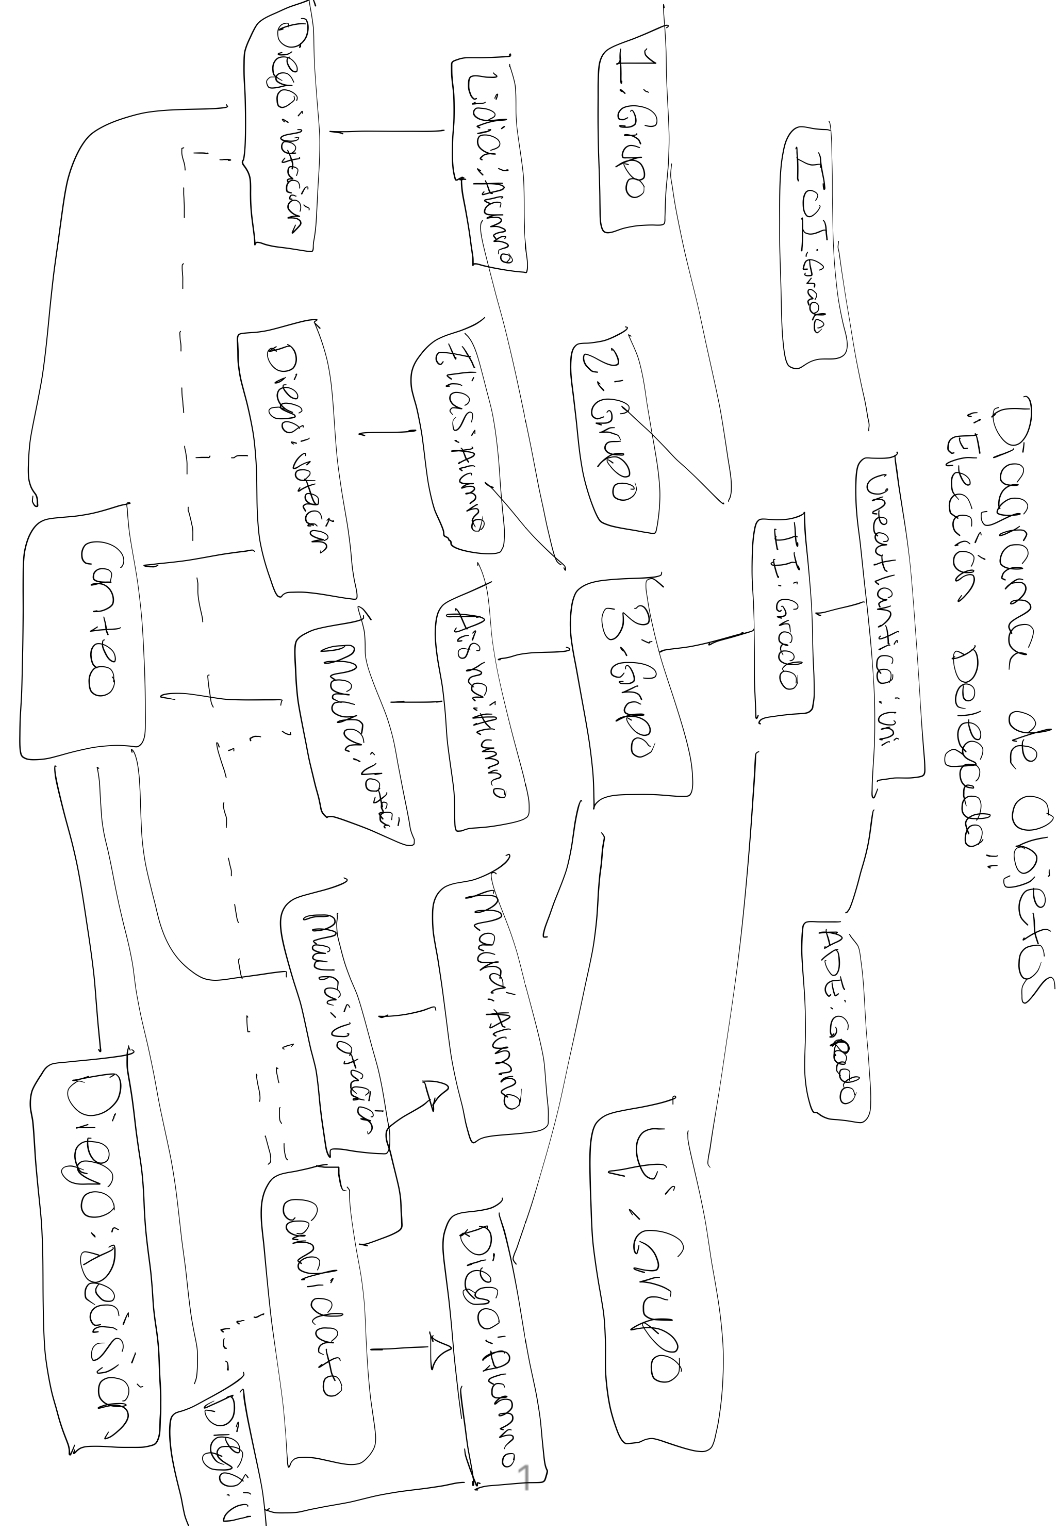 Diagrama de Objetos
"Elección Delegado"
Uneatlantico:Uni
IOI:Grado
II:Grado
ADE:Grado
1:Grupo
2:Grupo
3:Grupo
4:Grupo
Lidia:Alumno
Elias:Alumno
Aisha:Alumno
Maura:Alumno
Diego:Alumno
Diego:Votación
Diego:Votación
Maura:Votaci
Maura:Votación
Candidato
Diego:V
Conteo
Diego:Decisión
1